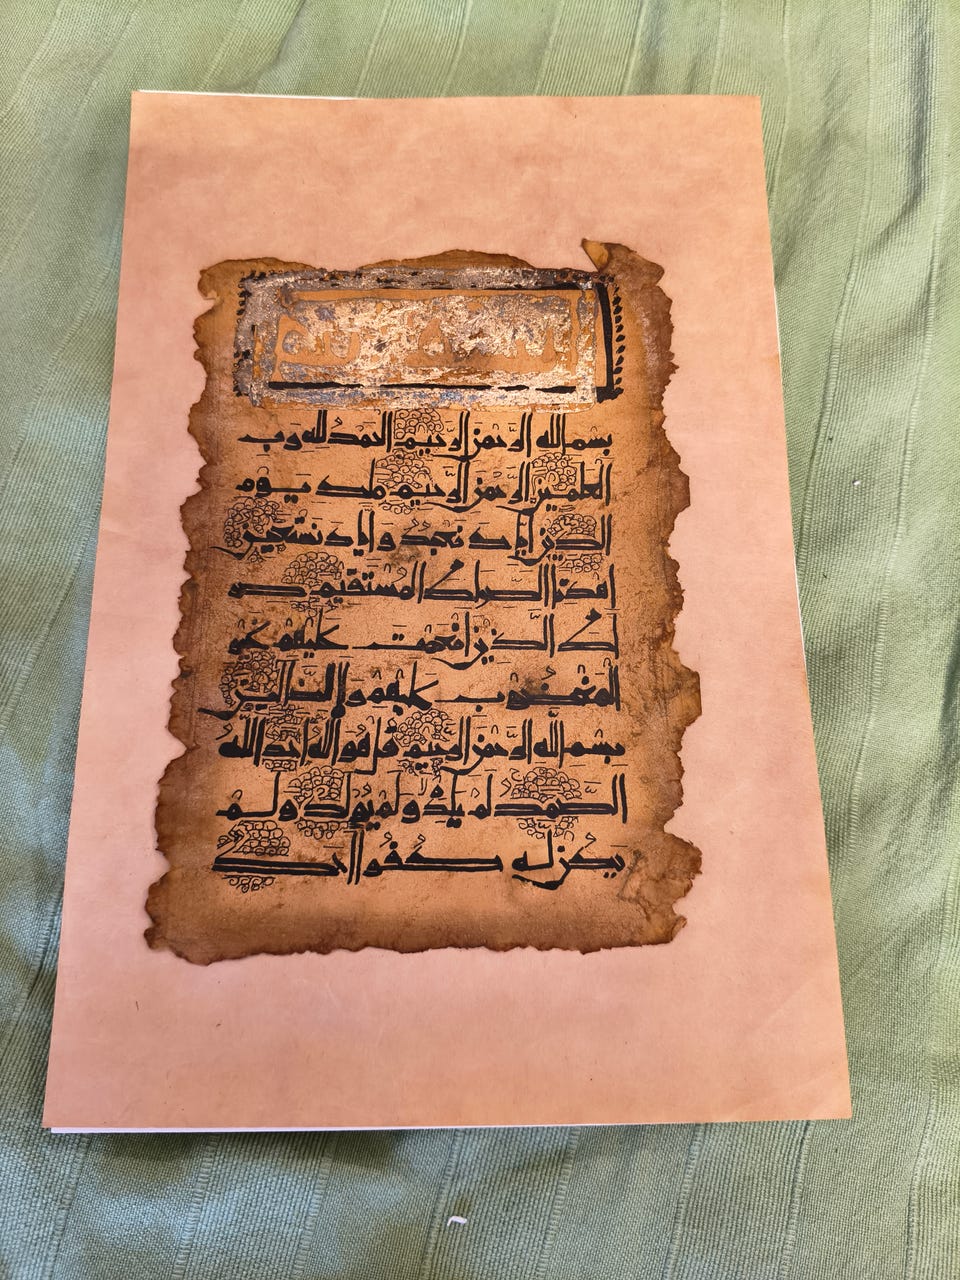 بسم الله الرحمن الرحيم الحمد لله رب
العلمين الرحمن الرحيم ملك يوم
الدين اياك نعبد و اياك نستعين
اهدنا الصراط المستقيم صر
اط الذين انعمت عليهم غير
المغضوب عليهم ولا الضالين
بسم الله الرحمن الرحيم قل هو الله احد الله
الصمد لم يلد ولم يولد ولم
يكن له كفوا احد